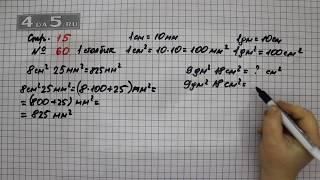 4 DA 5 .RU
Стр. 15
№ 60 1 столбик
1см = 10мм
1см² = 10·10 = 100мм²
1дм = 10см
1дм² = 100см²
8см² 25мм² = 825мм²
8см² 25мм² = (8·100+25)мм² =
= (800+25) мм² =
= 825 мм²
9дм² 18см² = ? см²
9дм² 18см² =